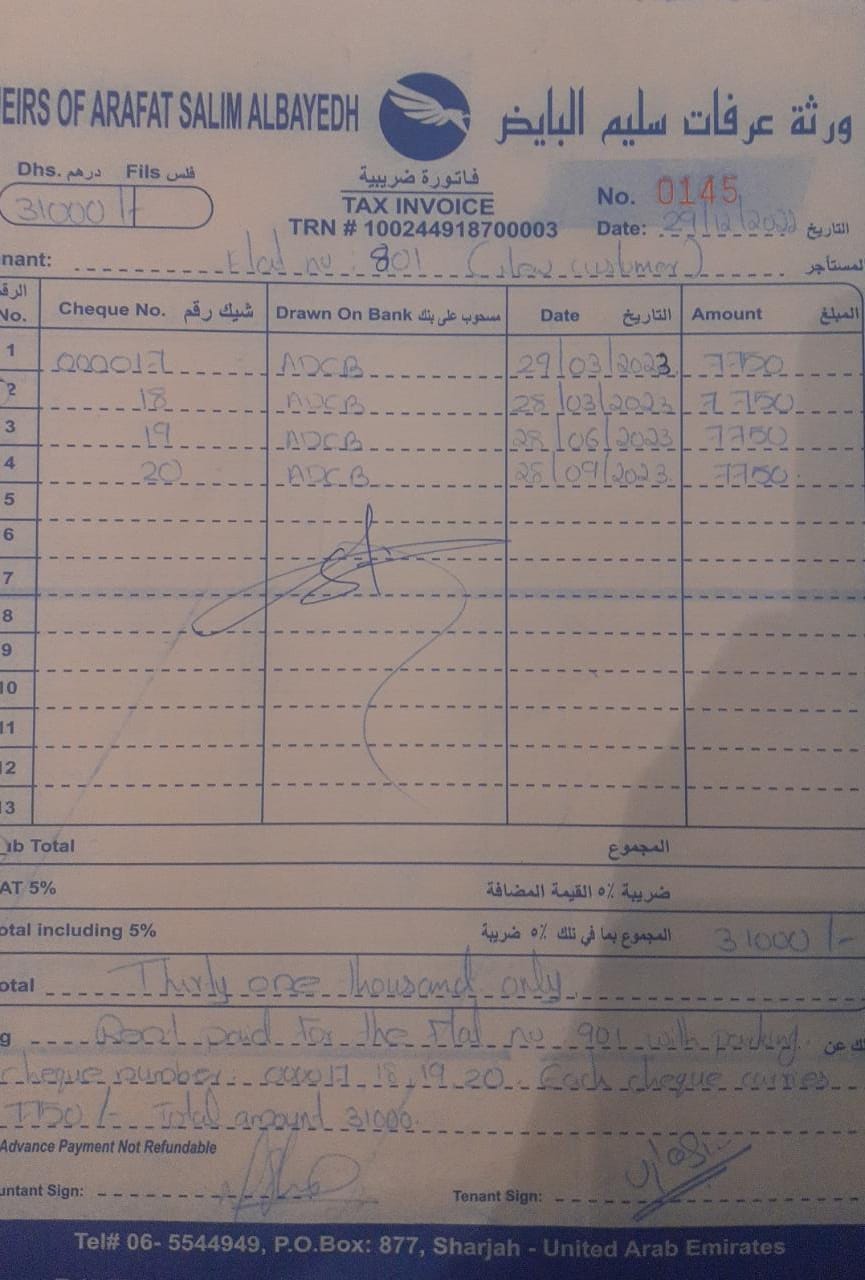 EIRS OF ARAFAT SALIM ALBAYEDH ورثة عرفات سليم البايض
Dhs. درهم Fils فلس
31000 /-
فاتورة ضريبية
TAX INVOICE
TRN # 100244918700003
No. 0145
Date: 29/12/2022 التاريخ
nant: Flat no : 801 (New customer) لمستأجر
الرقم No. Cheque No. شيك رقم Drawn On Bank مسحوب على بنك Date التاريخ Amount المبلغ
1 000017 ADCB 29/03/2023 7750
2 18 ADCB 28/03/2023 7750
3 19 ADCB 28/06/2023 7750
4 20 ADCB 28/09/2023 7750
5
6
7
8
9
10
11
12
13
ub Total المجموع
AT 5% ضريبة ٥٪ القيمة المضافة
otal including 5% المجموع بما في تلك ٥٪ ضريبة 31000 /-
otal Thirty one thousand only
g Rent paid for the Flat no 901 with parking. لك عن
cheque number: 000017, 18, 19, 20. Each cheque carries
7750/- Total amount 31000.
Advance Payment Not Refundable
untant Sign: Tenant Sign:
Tel# 06- 5544949, P.O.Box: 877, Sharjah - United Arab Emirates